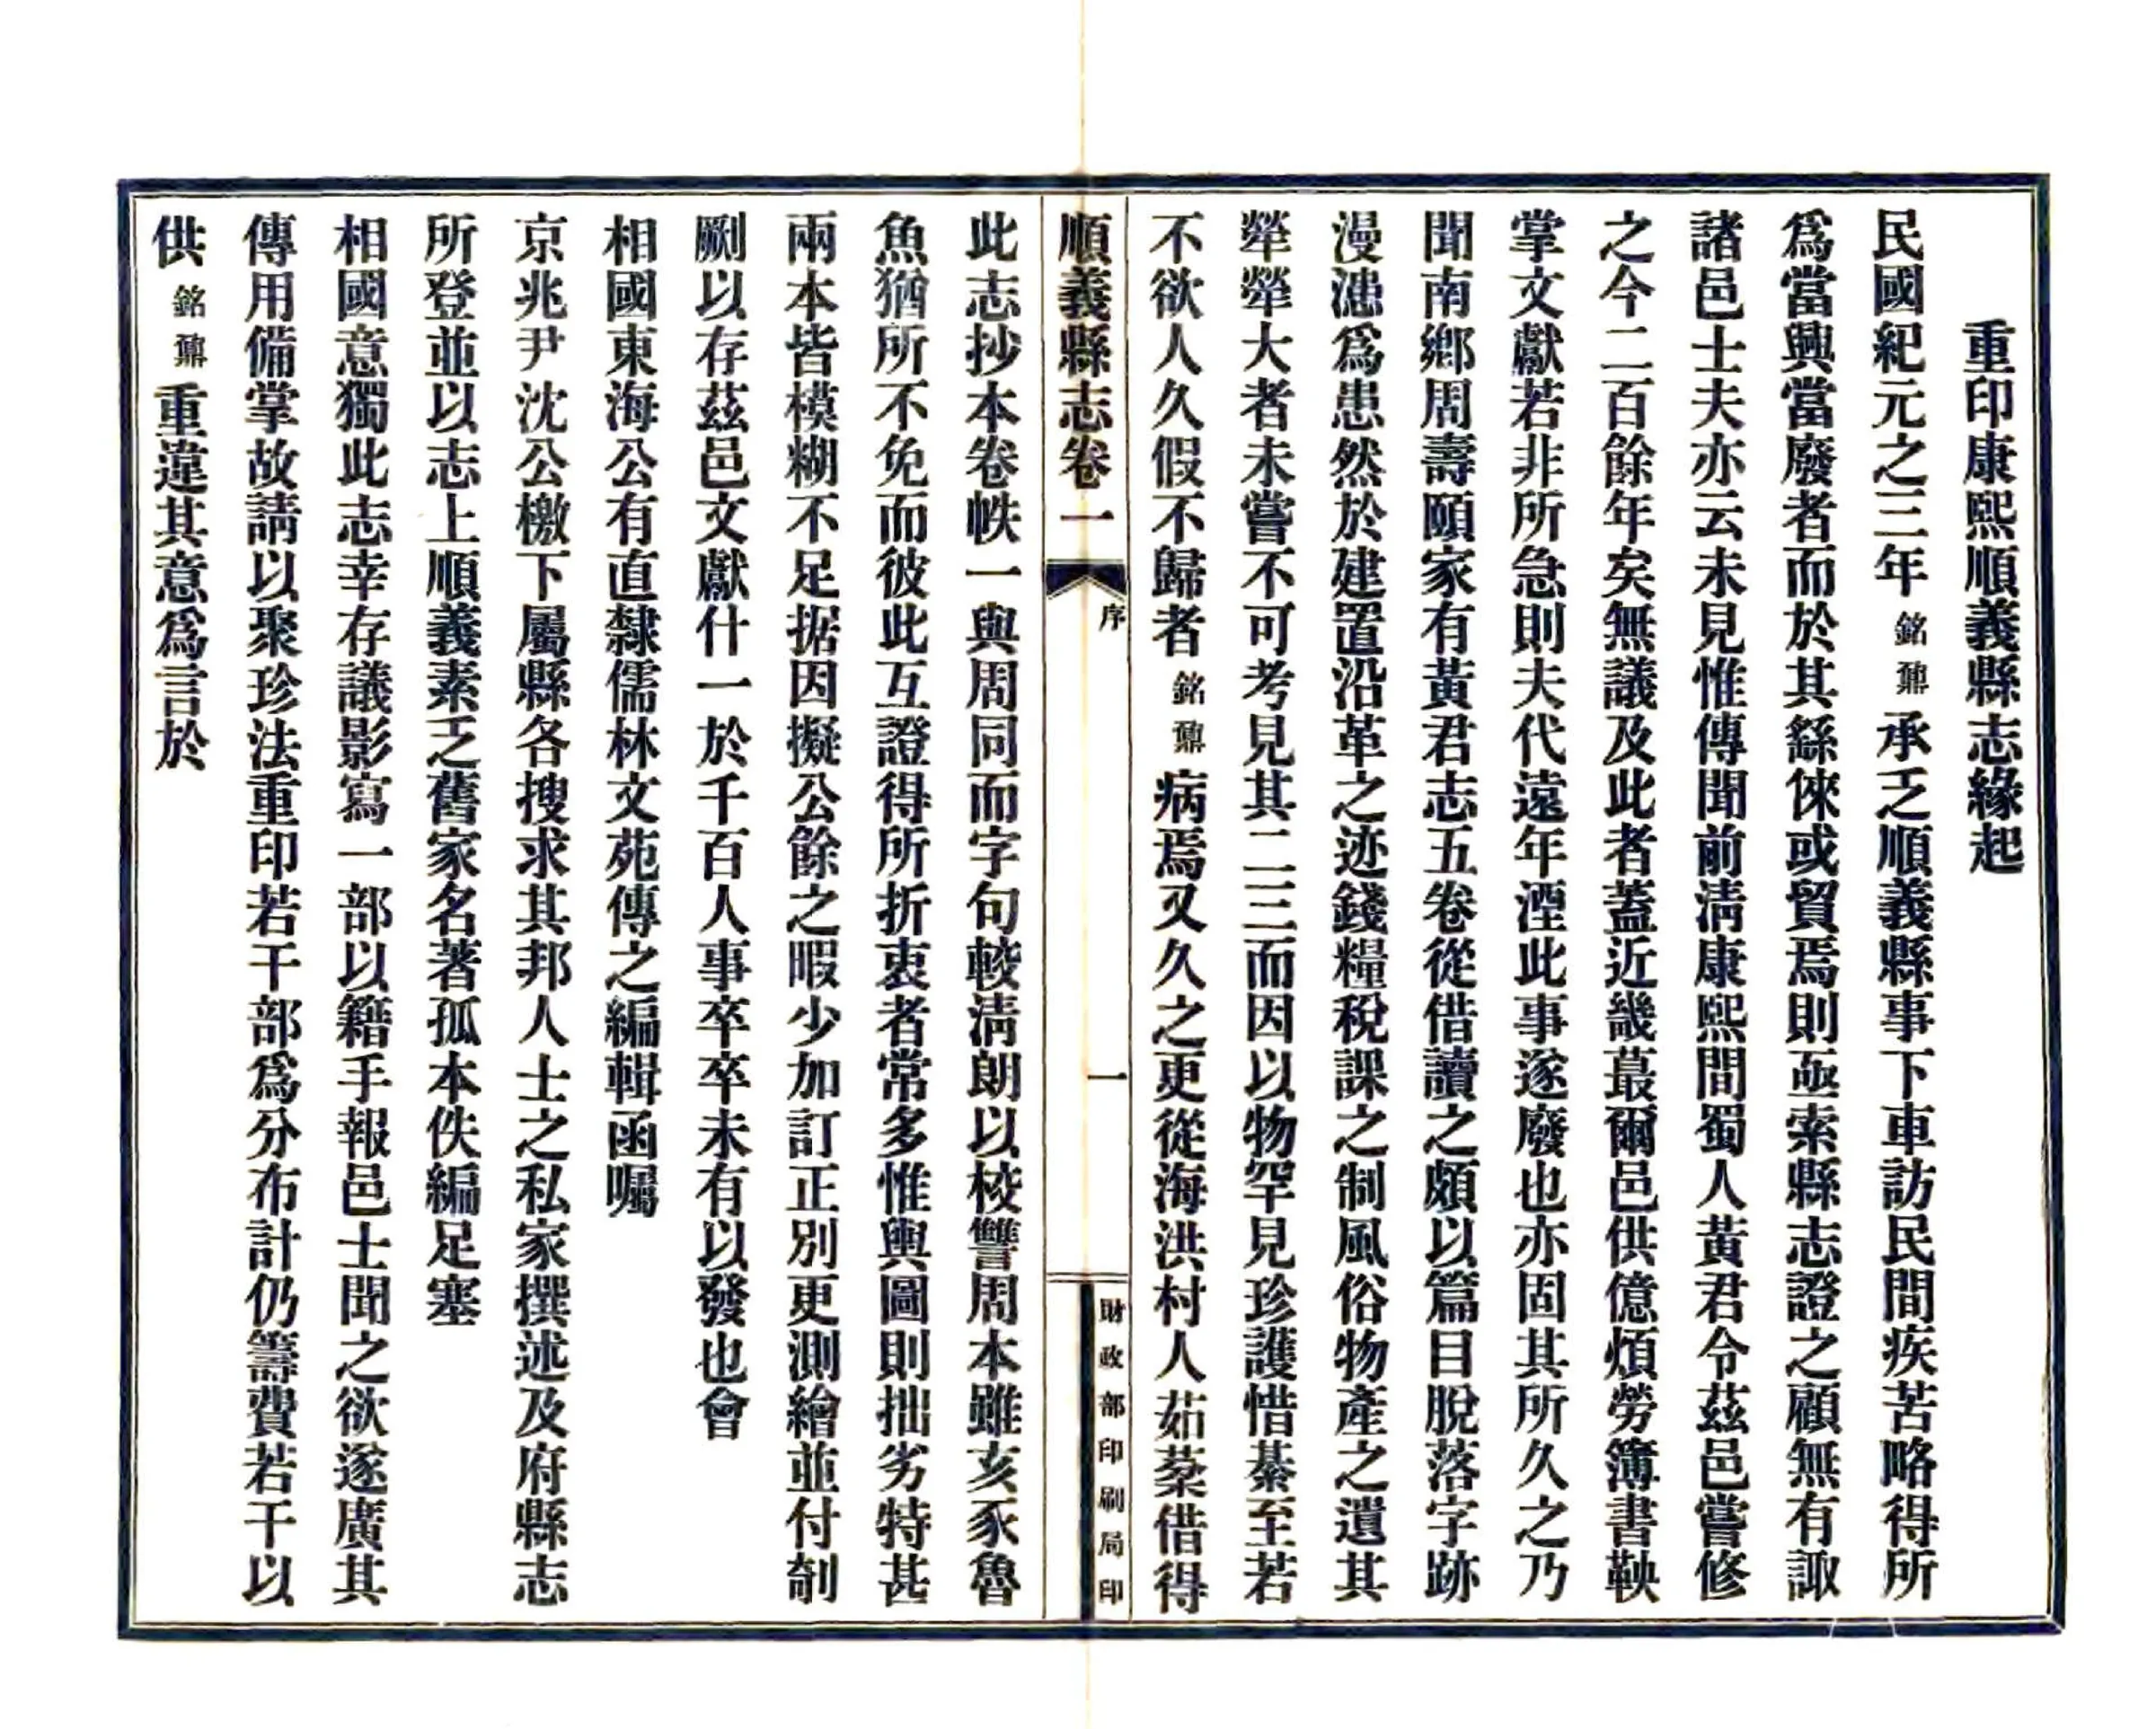 重印康熙順義縣志緣起
民國紀元之三年銘鼐承乏順義縣事下車訪民間疾苦略得所
爲當興當廢者而於其繇倈或貿焉則亟索縣志證之顧無有諏
諸邑士夫亦云未見惟傳聞前淸康熙間蜀人黃君令茲邑嘗修
之今二百餘年矣無議及此者蓋近畿蕞爾邑供億煩勞簿書鞅
掌文獻若非所急則夫代遠年湮此事遂廢也亦固其所久之乃
聞南鄉周壽頤家有黃君志五卷從借讀之頗以篇目脫落字跡
漫漶爲患然於建置沿革之迹錢糧稅課之制風俗物產之遺其
犖犖大者未嘗不可考見其二三而因以物罕見珍護惜綦至若
不欲人久假不歸者銘鼐病焉又久之更從海洪村人茹棻借得
順義縣志卷一
序
一
財政部印刷局印
此志抄本卷帙一與周同而字句較淸朗以校讐周本雖亥豕魯
魚猶所不免而彼此互證得所折衷者常多惟輿圖則拙劣特甚
兩本皆模糊不足据因擬公餘之暇少加訂正別更測繪並付剞
劂以存茲邑文獻什一於千百人事卒卒未有以發也會
相國東海公有直隸儒林文苑傳之編輯函囑
京兆尹沈公檄下屬縣各搜求其邦人士之私家撰述及府縣志
所登並以志上順義素乏舊家名著孤本佚編足塞
相國意獨此志幸存議影寫一部以籍手報邑士聞之欲遂廣其
傳用備掌故請以聚珍法重印若干部爲分布計仍籌費若干以
供銘鼐重違其意爲言於